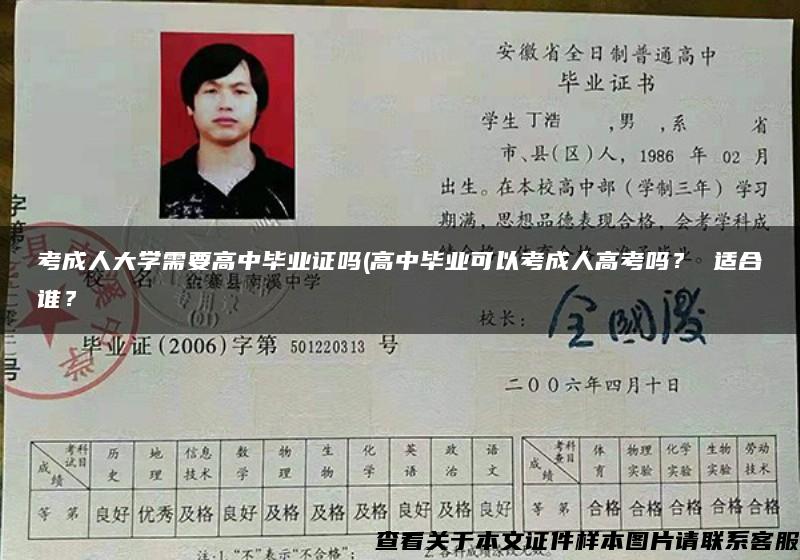 安徽省全日制普通高中
毕业证书
学生 丁浩 ,男 ,系 省
市、县(区)人, 1986 年 02 月
出生。在本校高中部（学制三年）学习
期满，思想品德表现合格，会考学科成
考成人大学需要高中毕业证吗(高中毕业可以考成人高考吗？ 适合
谁？
校 名 金寨县南溪中学
(01)
校长：
毕业证(2006)字第 501220313 号
二〇〇六年四月十日
考试科目 历史 地理 信息技术 数学 物理 生物 化学 英语 政治 语文
成绩
等第 良好 优秀 及格 良好 及格 及格 及格 良好 及格 良好
考查科目 体育 物理实验 化学实验 生物实验 劳动技术
成绩
等第 合格 合格 合格 合格 合格
查看关于本文证件样本图片请联系客服
注:1."不"表示"不合格"；